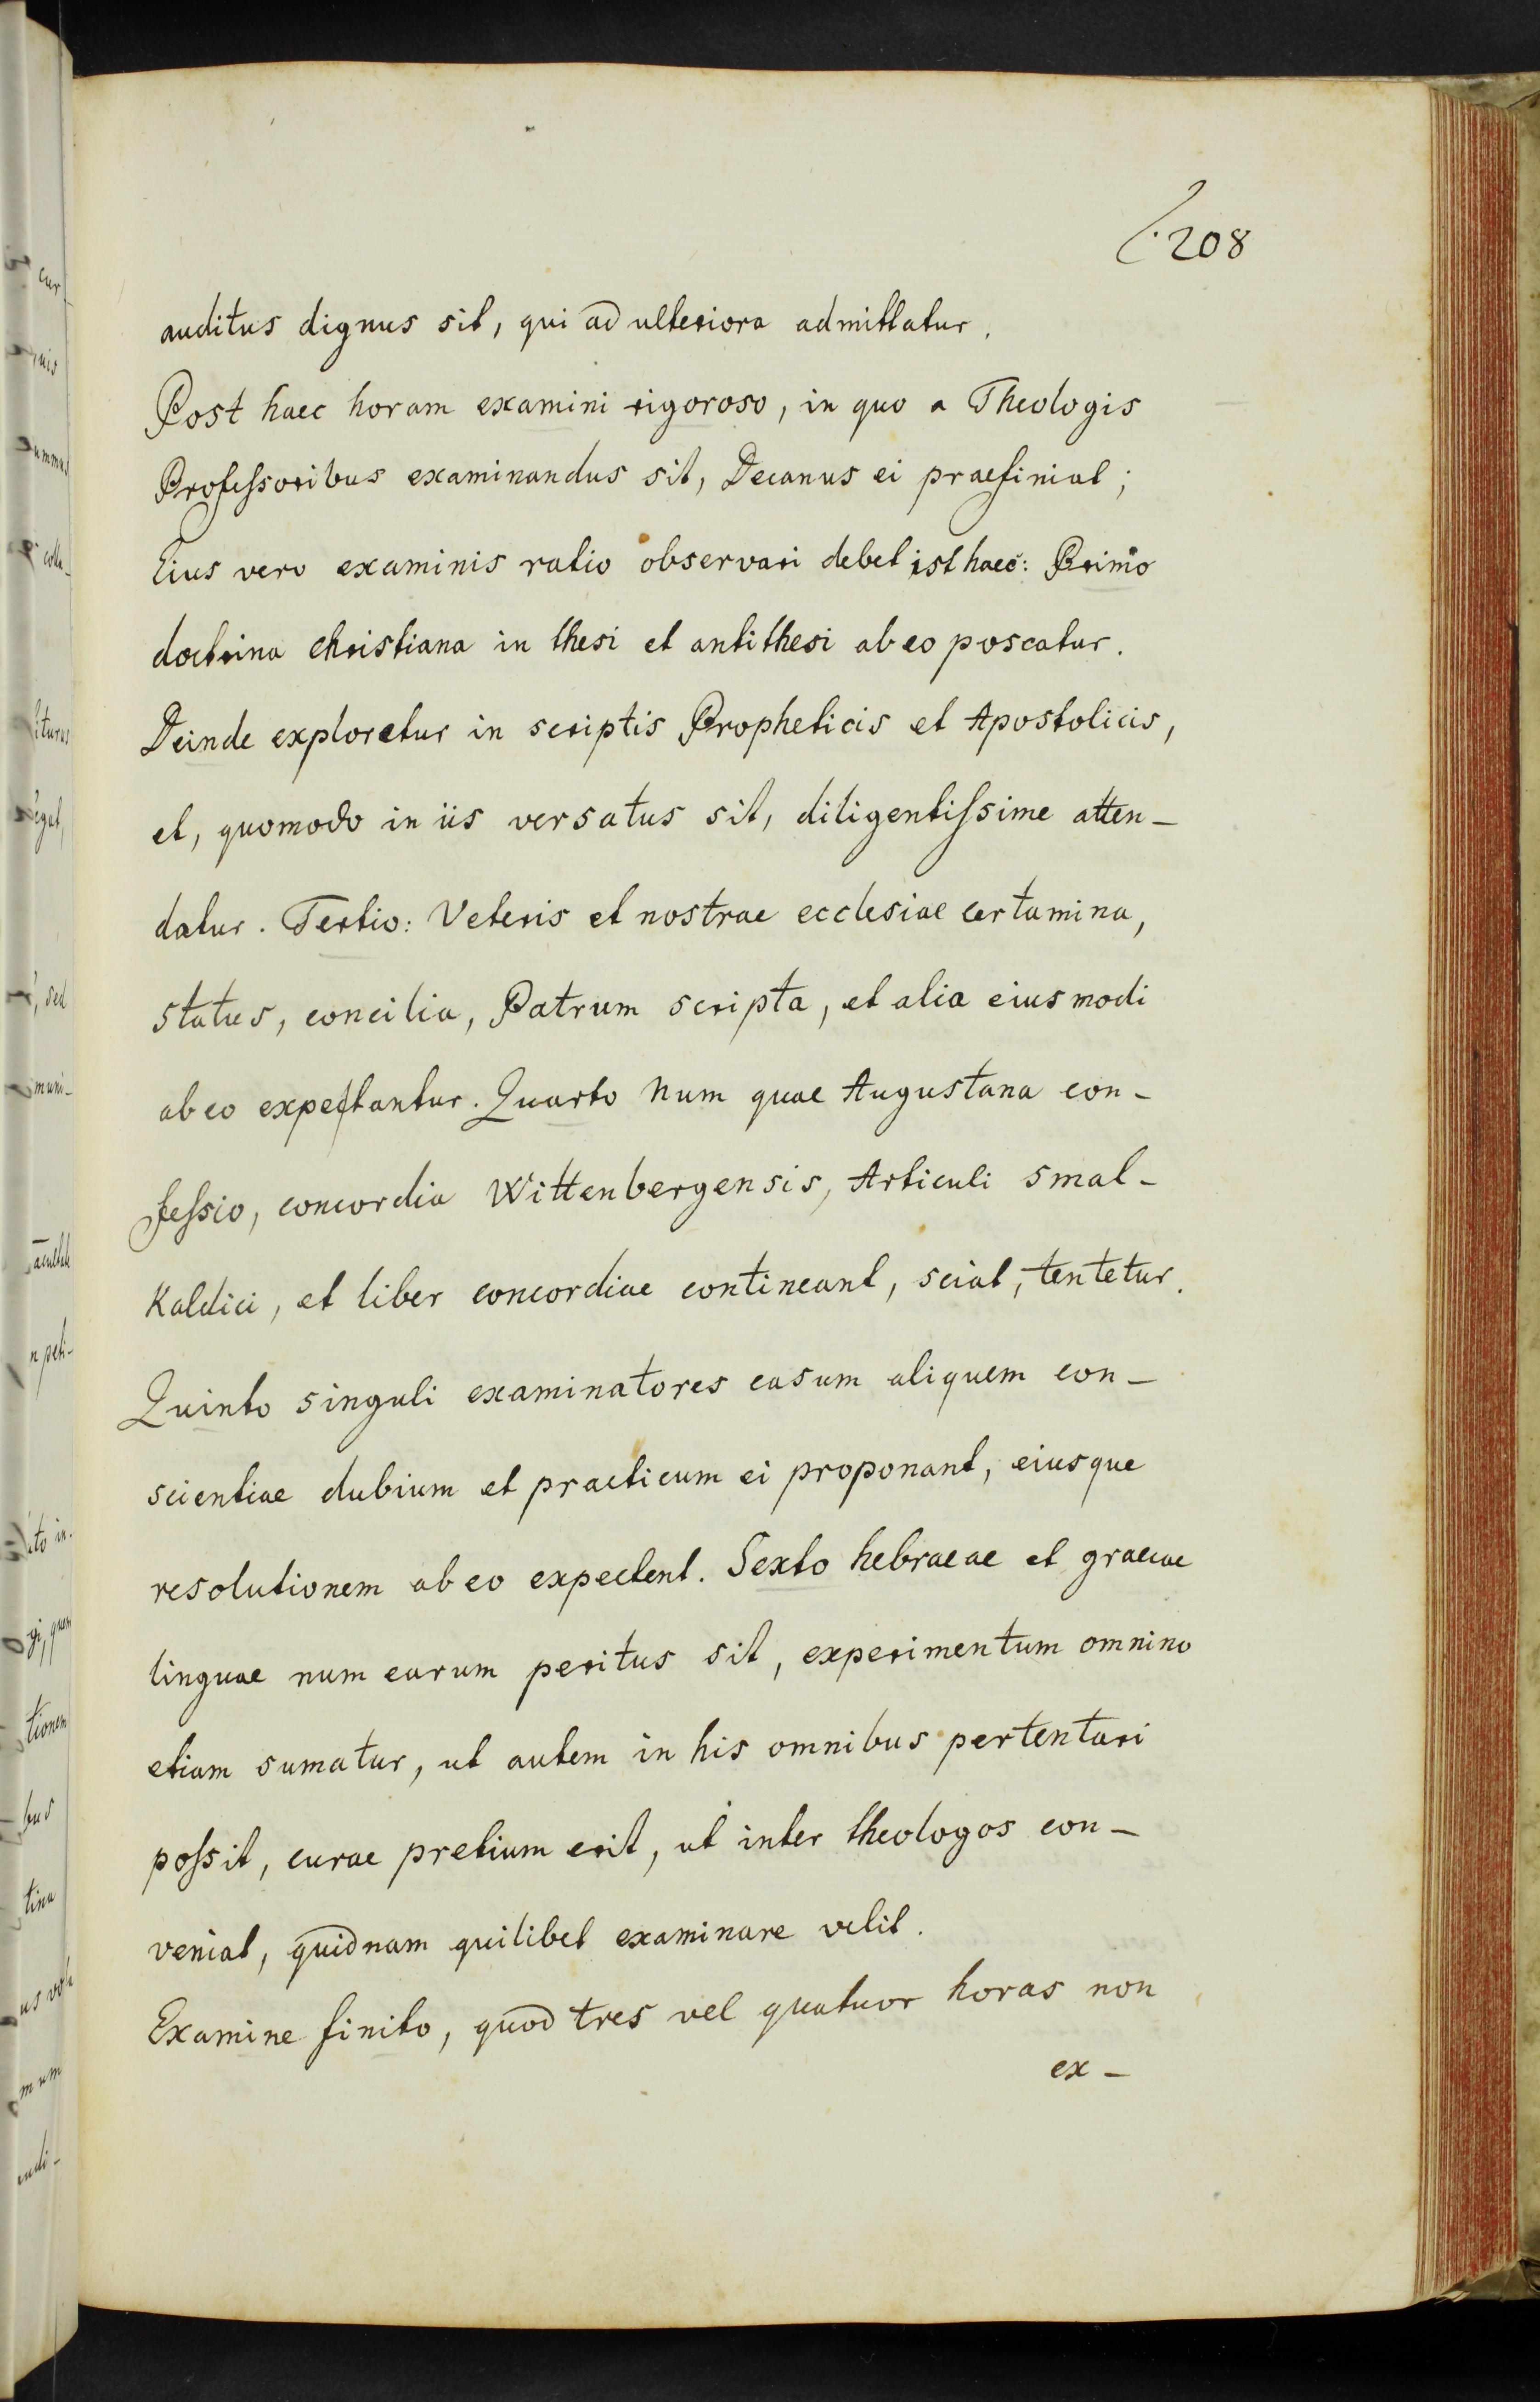 208
auditus dignus sit, qui ad ulteriora admittatur.
Post haec horam examini rigoroso, in quo a Theologis
Professoribus examinandus sit, Decanus ei praefiniat;
Eius vero examinis ratio observari debet isthaec: Primo
doctrina christiana in thesi et antithesi ab eo poscatur.
Deinde exploretur in scriptis Propheticis et Apostolicis,
et, quomodo in iis versatus sit, diligentissime atten-
datur. Tertio: Veteris et nostrae ecclesiae certamina,
status, concilia, Patrum scripta, et alia eiusmodi
ab eo expectantur. Quarto Num quae Augustana con-
fessio, concordia Wittenbergensis, Articuli Smal-
kaldici, et liber concordiae contineant, sciat, tentetur.
Quinto singuli examinatores casum aliquem con-
scientiae dubium et practicum ei proponant, eiusque
resolutionem ab eo expectent. Sexto hebraeae et graecae
linguae num earum peritus sit, experimentum omnino
etiam sumatur, ut autem in his omnibus pertentari
possit, curae pretium erit, ut inter theologos con-
veniat, quidnam quilibet examinare velit.
Examine finito, quod tres vel quatuor horas non
ex-